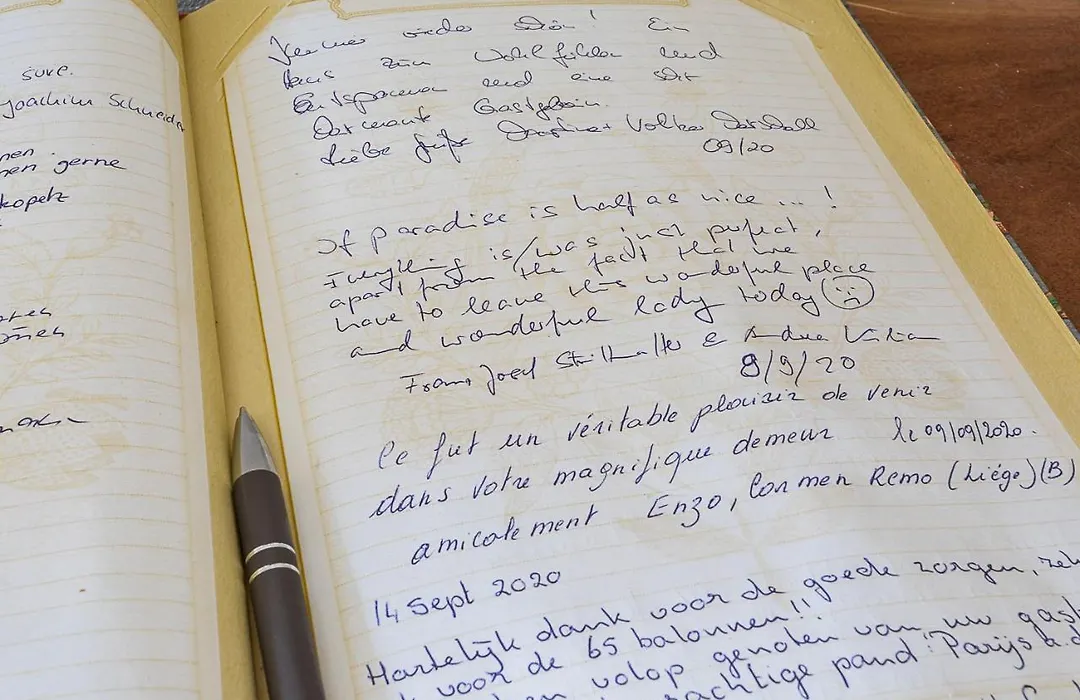 suve.
Joachim Schneider
nen
nen gerne
kopetz
Immer wieder schön! Ein
Haus zum Wohlfühlen und
Entspannen und eine sehr
Gastgeberin.
Liebe Grüße Volker
09/20
If paradise is half as nice ... !
Everything is/was just perfect,
apart from the fact that we
have to leave this wonderful place
and wonderful lady today
Franz Josef &
9/9/20
Ce fut un véritable plaisir de venir
dans votre magnifique demeur le 09/09/2020.
amicalement Enzo, Carmen Remo (Liége) (B)
14 Sept 2020
Hartelijk dank voor de goede zorgen,
voor de 65 balonnen!!
volop genoten van uw
pand: Parijs a.d.